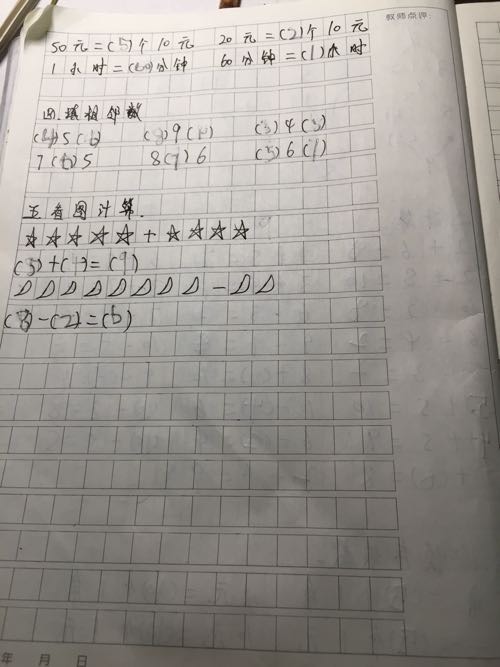 教师点评:
50元=(5)个10元 20元=(2)个10元
1小时=(60)分钟 60分钟=(1)小时
四.填相邻数
(4)5(6) (8)9(10) (3)4(5)
7(6)5 8(7)6 (5)6(7)
五看图计算.
☆☆☆☆☆+☆☆☆☆
(5)+(4)=(9)
(8)-(2)=(6)
年 月 日